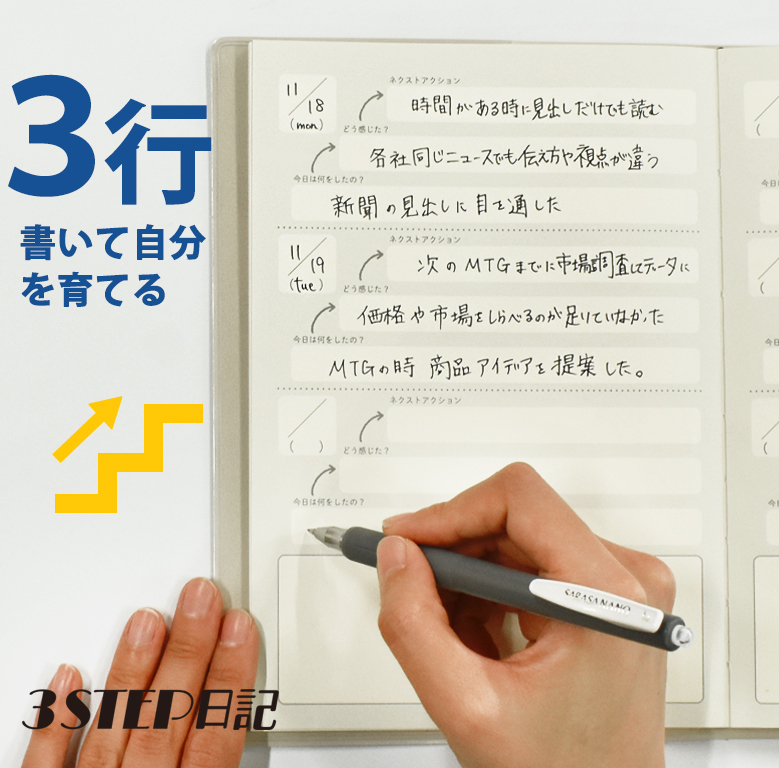 3行
書いて自分
を育てる
3STEP日記
11/18
(mon)
ネクストアクション
時間がある時に見出しだけでも読む
どう感じた?
各社同じニュースでも伝え方や視点が違う
今日は何をしたの?
新聞の見出しに目を通した
11/19
(tue)
ネクストアクション
次のMTGまでに市場調査してデータに
どう感じた?
価格や市場をしらべるのが足りていなかった
今日は何をしたの?
MTGの時 商品アイデアを提案した。
/
( )
ネクストアクション
どう感じた?
今日は何をしたの?
SARASA NANO
(
今日
(
今日は
(
今日